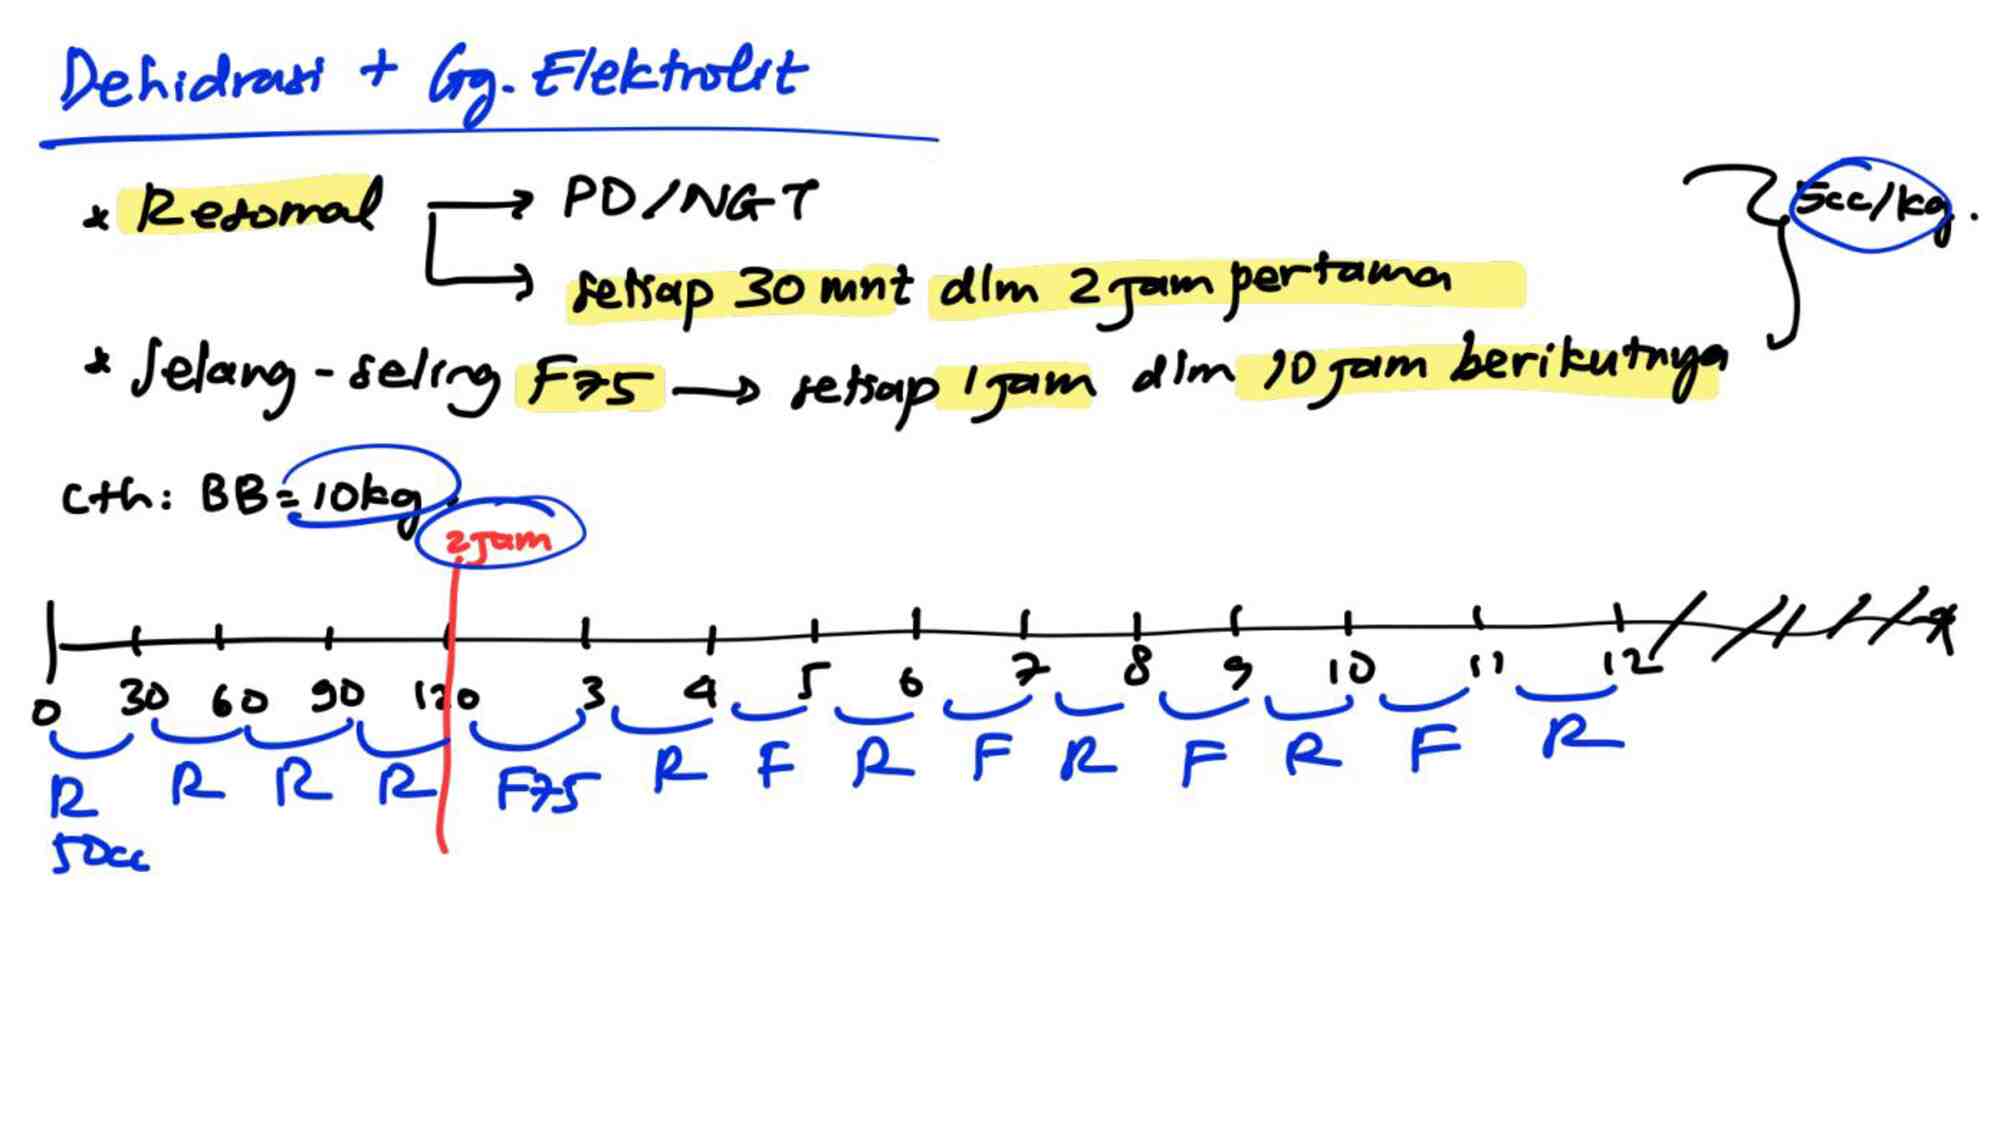 Dehidrasi + Gg. Elektrolit
* Resomal → PO/NGT
→ setiap 30 mnt dlm 2 jam pertama
5cc/kg.
* Selang-seling F75 → setiap 1 jam dlm 10 jam berikutnya
Cth: BB = 10kg
2 jam
0 30 60 90 120 3 4 5 6 7 8 9 10 11 12
R R R R F75 R F R F R F R F R
50cc